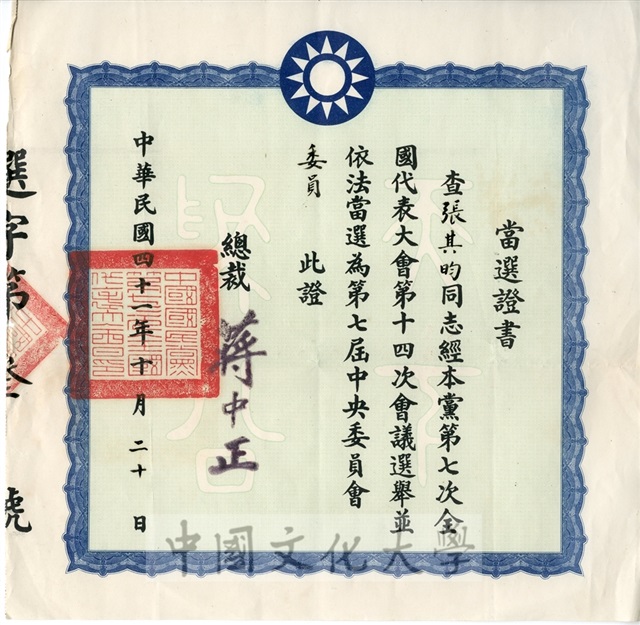 當選證書
查張其昀同志經本黨第七次全
國代表大會第十四次會議選舉並
依法當選為第七屆中央委員會
委員 此證
總裁 蔣中正
中華民國四十一年十月二十日
選字第 號
中國文化大學